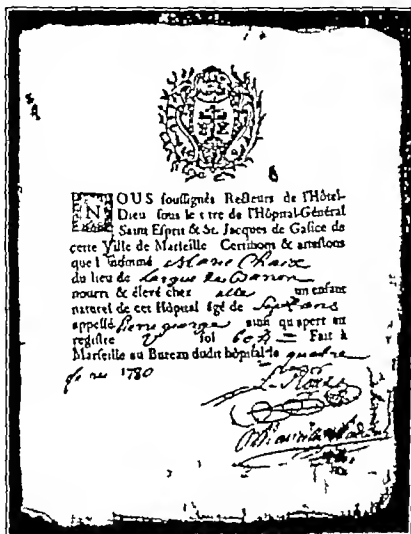 NOUS soussignés Recteurs de l'Hôtel-
Dieu sous le titre de l'Hôpital-Général
Saint Esprit & St. Jacques de Galice de
cette Ville de Marseille Certifions & attestons
que l nommé Marie Chaix
du lieu de Largue
nourri & élevé chez elle un enfant
naturel de cet Hôpital âgé de Sept ans
appellé Pierre george ainsi qu'apert au
registre V fol Fait à
Marseille au Bureau dudit hôpital le quatre
1780